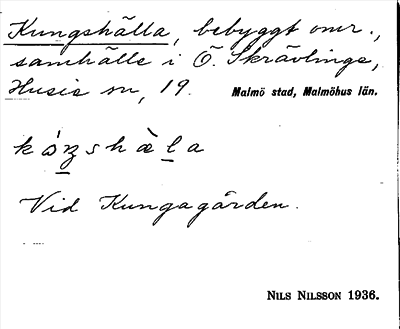 Kungshälla, bebyggt omr.,
samhälle i Ö. Skrävlinge,
Husie sn, 19. Malmö stad, Malmöhus län.
Vid Kungagården.
NILS NILSSON 1936.